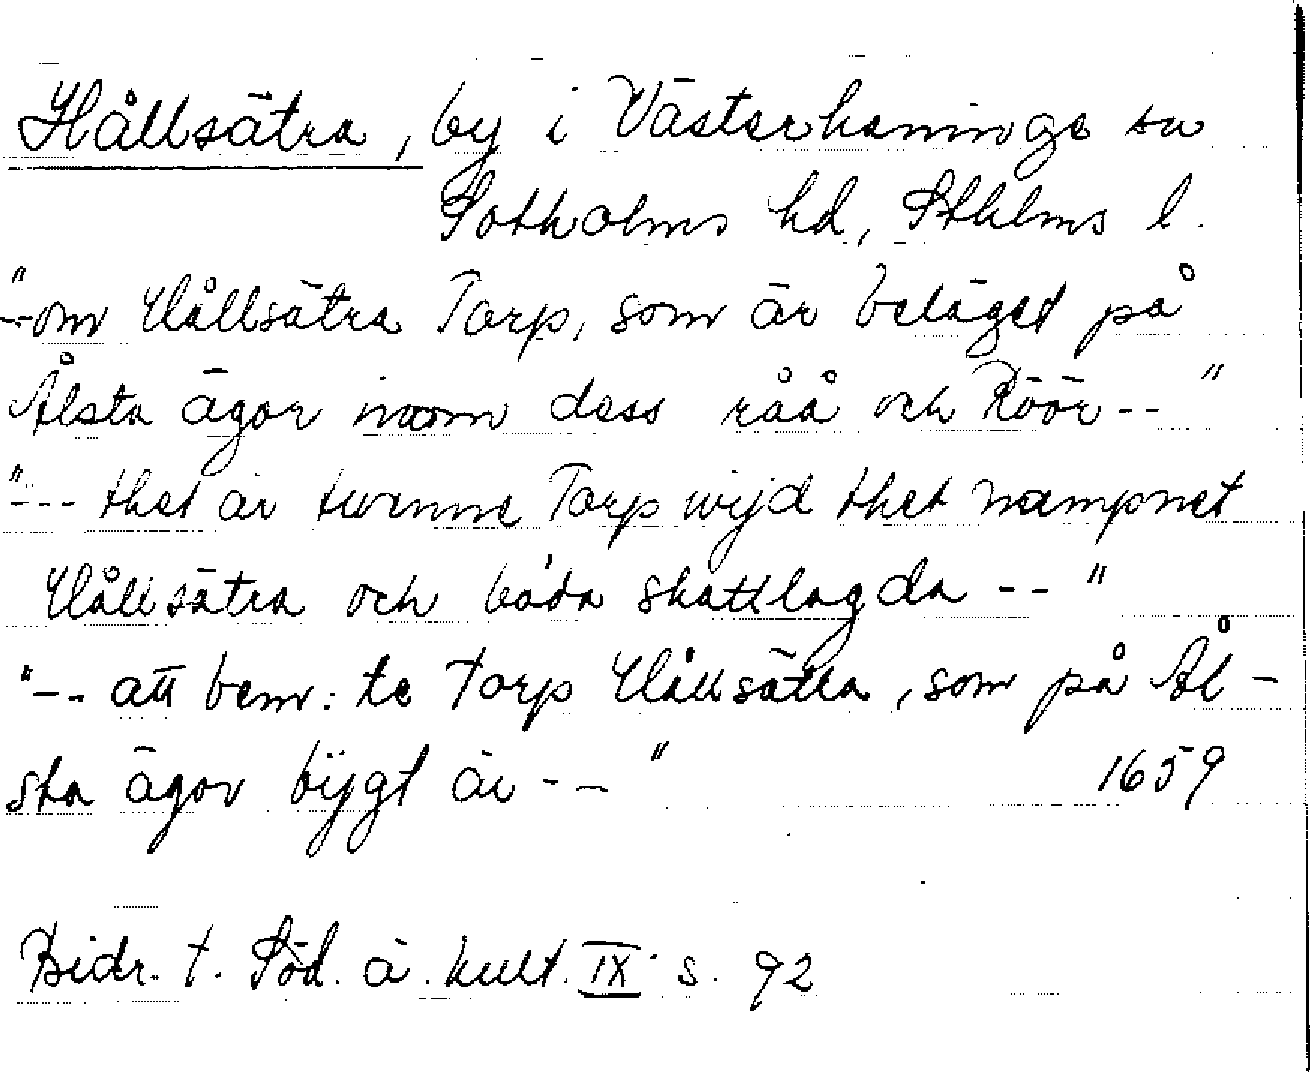 Hållsätra, by i Västerhaninge sn
Sotholms hd, Sthlms l.
"--om Hållsätra Torp, som är beläget på
Ålsta ägor inom dess råå och Röör--"
"--- thet är twenne Torp wijd thet nampnet
Hållsätra och båda skattlagda --"
"-- att bem:te Torp Hållsätra, som på Ål-
sta ägor bÿgt är -- " 1659
Bidr. t. Söd. ä. kult. IX s. 92